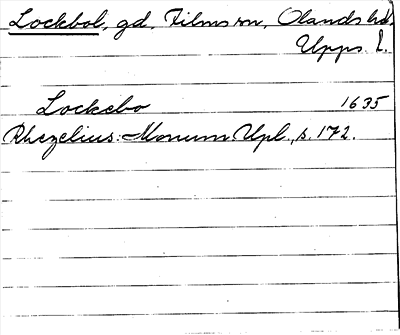 Lockbol, gd, Films sn, Olands hd,
Upps. l.
Lockebo 1635
Rhezelius: Monum. Upl., s. 172.